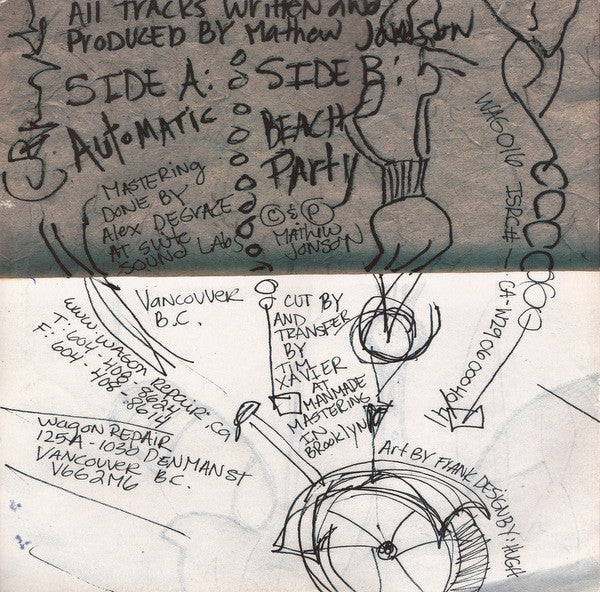 All Tracks Written and
Produced By Mathew Jonson
SIDE A:
Automatic
SIDE B:
BEACH
Party
MASTERING
DONE BY
Alex DEGRACE
AT SUITE
SOUND LABS
© & ℗
Mathew
JONSON
WAG016 ISRC# - CA-W29060004
VANCOUVER
B.C.
www.wagon repair.ca
T: 604-408-8624
F: 604-408-8614
wagon REPAIR
125A-1030 DENMAN ST
VANCOUVER B.C.
V662M6
CUT BY
AND
TRANSFER
BY
TIM
XAVIER
AT
MANMADE
MASTERING
IN
BROOKLYN
Art BY FRANK DESIGN BY: HUGH